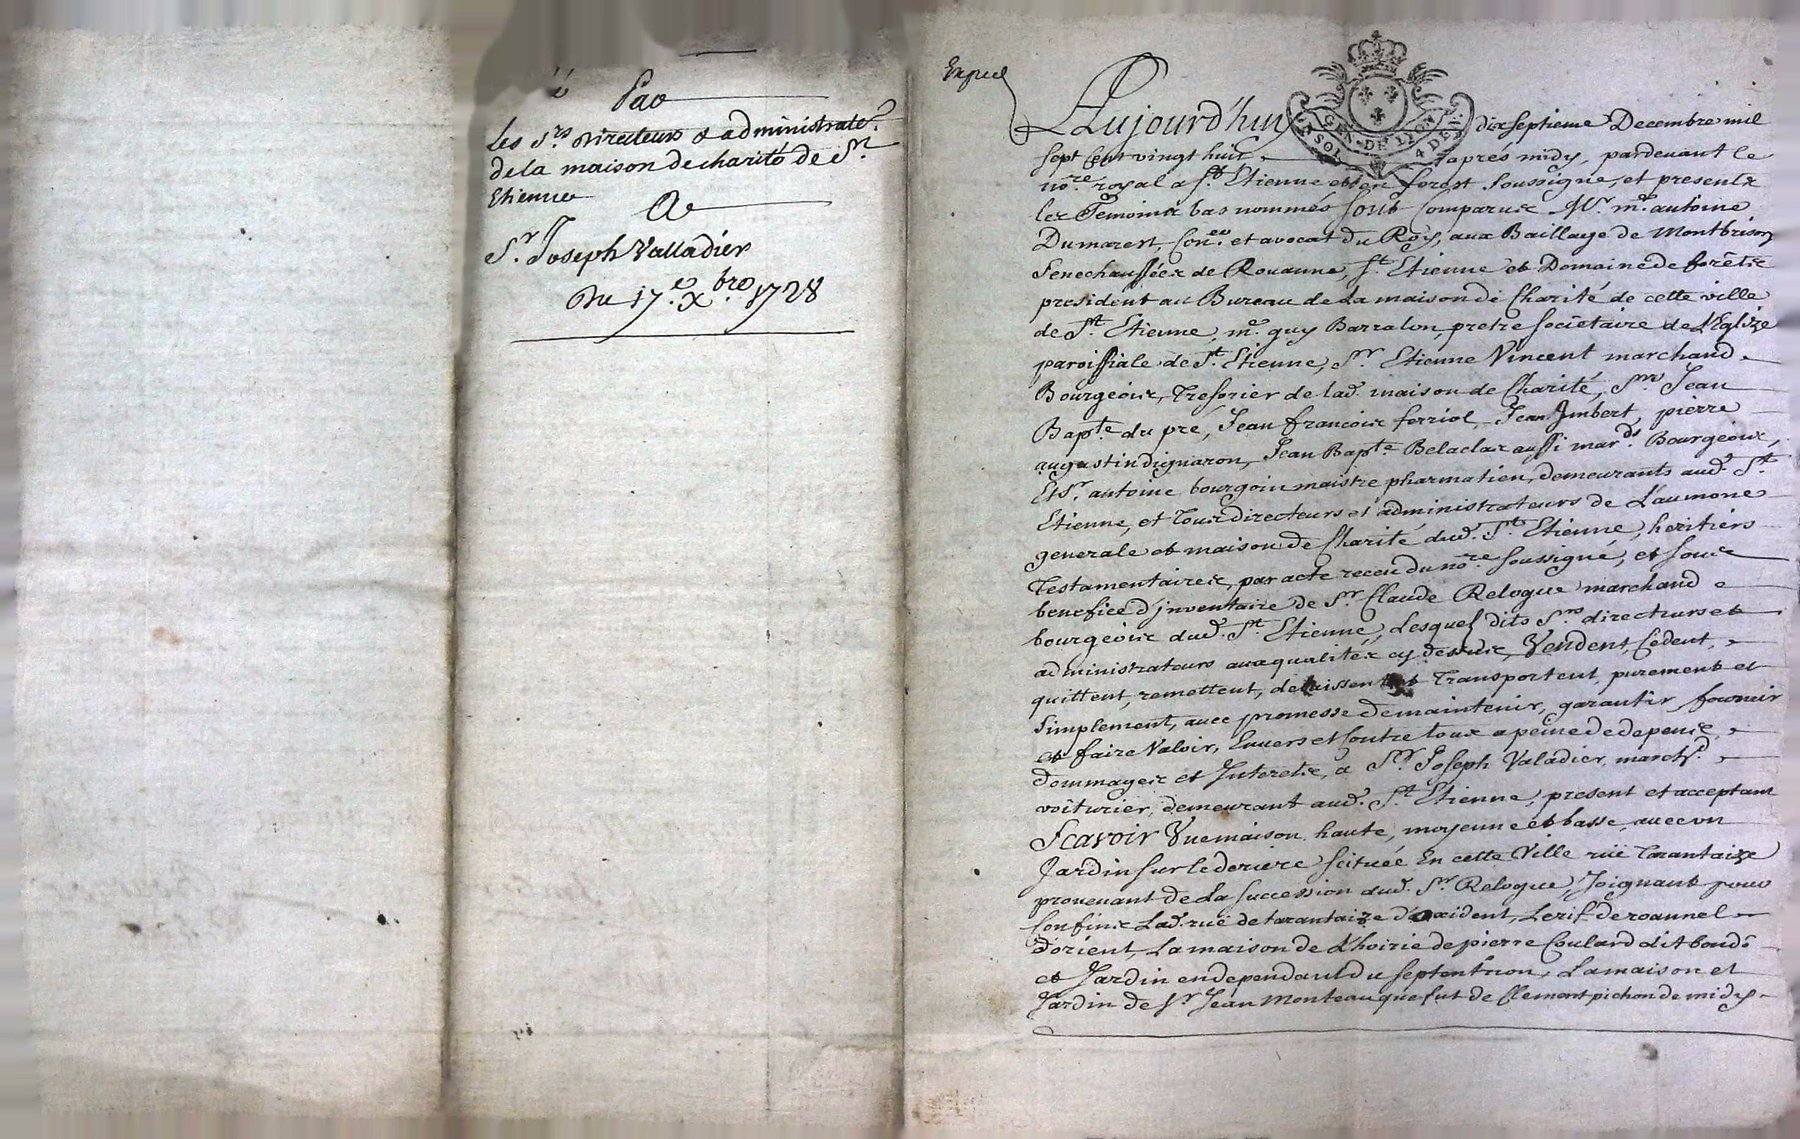 Par
Les S.rs Directeurs & administrate.rs
de la maison de charité de S.t
Etienne
A
S.r Joseph Valladier
Du 17.e Xbre 1728
Expedi
GEN. DE LION
SOL 4 DEN.
Aujourd'huy dixseptieme Decembre mil
sept cent vingt huit après midy, pardevant le
no.re royal a S.t Etienne et en forest soussigné, et presents
les Temoins bas nommés sont comparus M.r m.e antoine
Dumarest, con.er et avocat du Roy, aux Baillage de Montbrison
Senechaussées de Rouanne, S.t Etienne et Domaine de forêts
president au Bureau de la maison de Charité de cette ville
de S.t Etienne, m.e guy Barralon, pretre societaire de L'Eglize
paroissiale de S.t Etienne, S.r Etienne Vincent marchand
Bourgeois, Tresorier de lad. maison de Charité, S.rs Jean
Bap.te du pré, Jean francois ferriol, Jean Jmbert, pierre
augustin dignaron, Jean Bap.te Belaclas aussi mar.ds Bourgeois,
Et S.r antoine bourgoin maistre pharmatien, demeurants aud. S.t
Etienne, et Tous directeurs et administrateurs de L'aumone
generale et maison de Charité dud. S.t Etienne, heritiers
Testamentaires, par acte receu du no.re soussigné, et sous
benefice d'jnventaire de S.r Claude Relogue marchand
bourgeois dud. S.t Etienne, Lesquels dits S.rs directeurs et
administrateurs aux qualités cy dessus, Vendent, Cedent,
quittent, remettent, delaissent et Transportent, purement et
simplement, avec promesse de maintenir, garantir, fournir
et faire Valoir, Envers et Contre tous a peine de depens,
Dommages et Jnterets, a S.r Joseph Valadier, march.d
voiturier, demeurant aud. S.t Etienne, present et acceptant
Scavoir Vne maison haute, moyenne et basse, avec vn
Jardin sur le deriere scituée En cette Ville rüe Tarantaize
prouenant de La succession dud. S.r Relogue, Joignant pour
Confins Lad. rüe de tarantaize d'occident, Le rif de roannel
D'orient, La maison de L'hoirie de pierre Coulard dit boudō
et Jardin en dependant du septentrion, La maison et
Jardin de S.r Jean Monteau que fut de Clemont pichon de midy